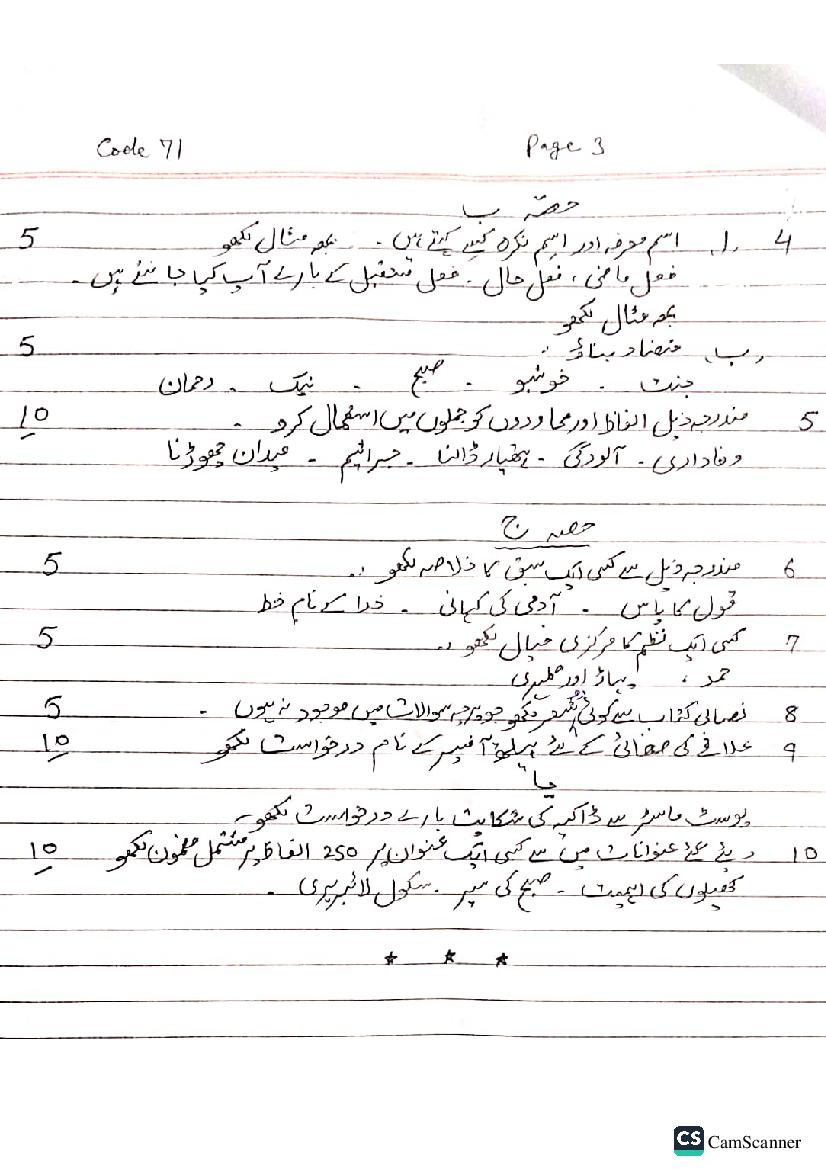 Code 71 Page 3
حصّہ ب
4 ا. اسم معرفہ اور اسم نکرہ کسے کہتے ہیں۔ بمعہ مثال لکھو 5
فعل ماضی، فعل حال۔ فعل مستقبل کے بارے آپ کیا جانتے ہیں۔
بمعہ مثال لکھو
ب. متضاد بناؤ: 5
جنت - خوشبو - صبح - نیک - رحمان
5 مندرجہ ذیل الفاظ اور محاوروں کو جملوں میں استعمال کرو۔ 10
وفاداری۔ آلودگی - ہتھیار ڈالنا - جراثیم - میدان چھوڑنا
حصہ ج
6 مندرجہ ذیل سے کسی ایک سبق کا خلاصہ لکھو:. 5
قول کا پاس - آدمی کی کہانی - خدا کے نام خط
7 کسی ایک نظم کا مرکزی خیال لکھو:. 5
حمد، پہاڑ اور گلہری
8 نصابی کتاب سے کوئی شعر لکھو جو پرچہ سوالات میں موجود نہ ہوں - 5
9 علاقے کی صفائی کے لئے ہیلتھ آفیسر کے نام درخواست لکھو 10
"یا"
پوسٹ ماسٹر سے ڈاکیہ کی شکایت بارے درخواست لکھو۔
10 دیئے گئے عنوانات میں سے کسی ایک عنوان پر 250 الفاظ پر مشتمل مضمون لکھو 10
کھیلوں کی اہمیت - صبح کی سیر - سکول لائبریری -
* * *
CS CamScanner